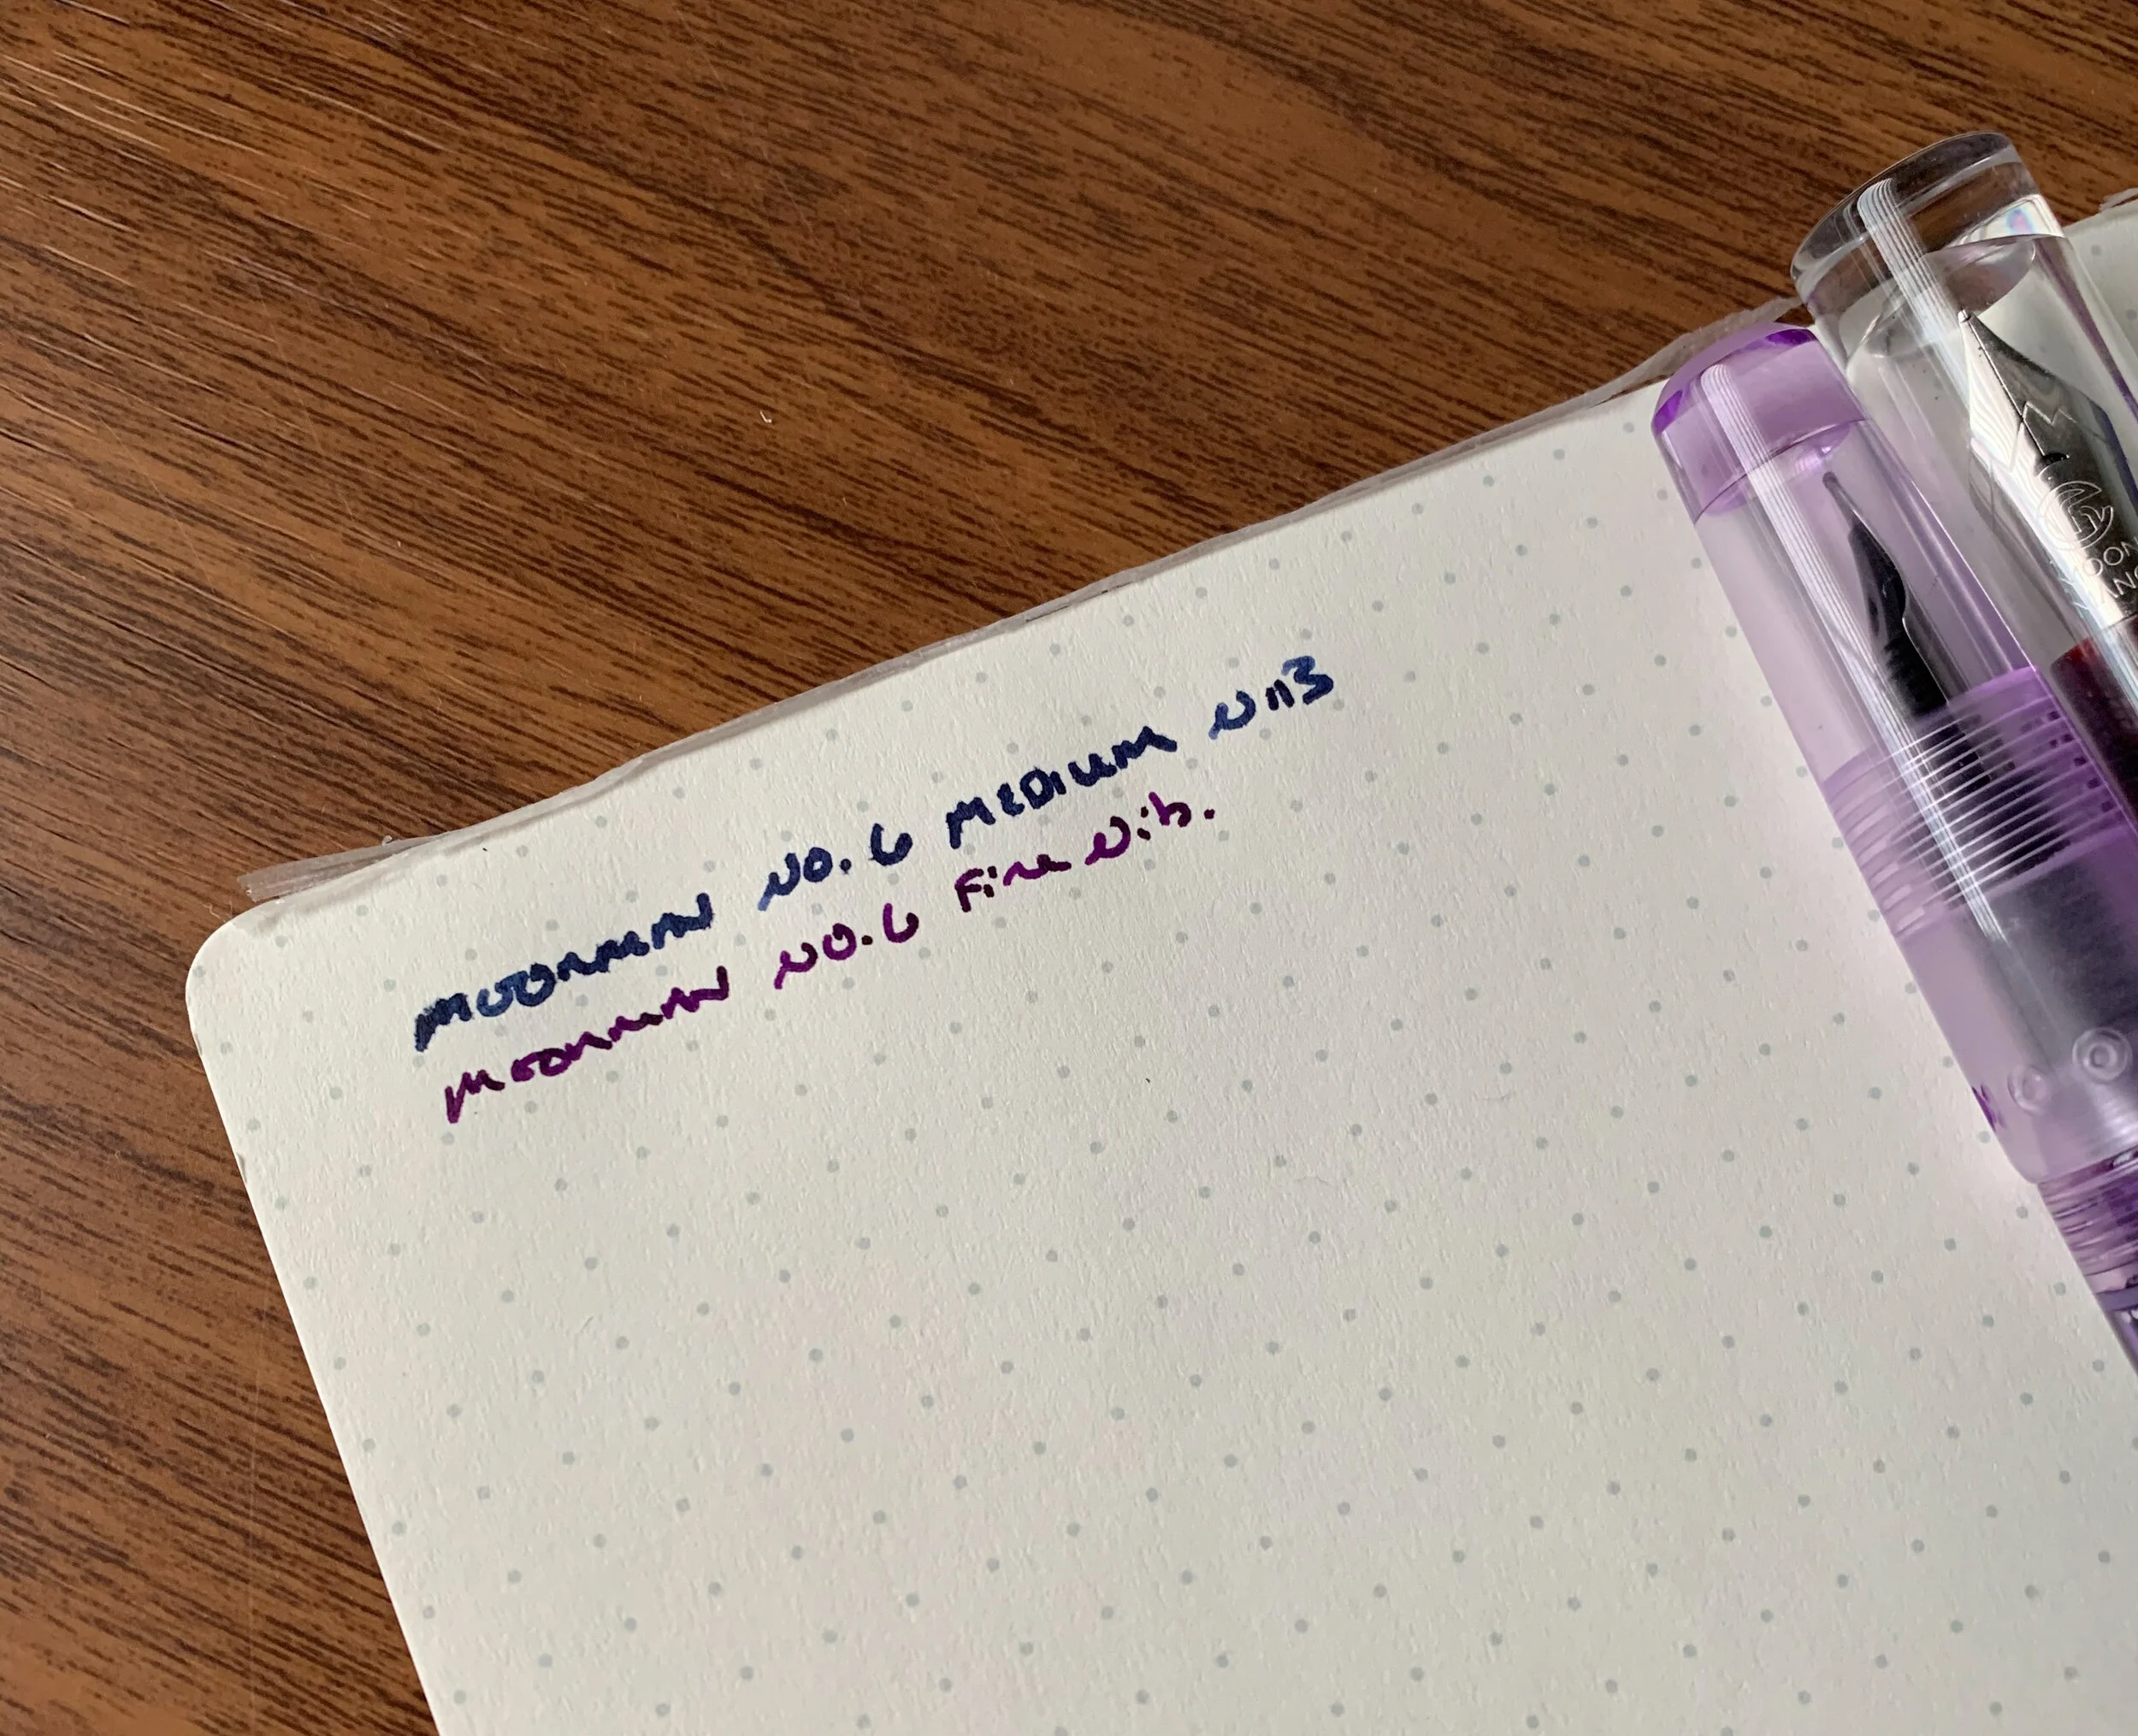 MOONMAN NO. 6 MEDIUM NIB
MOONMAN NO. 6 Fine Nib.
MOON
MAN